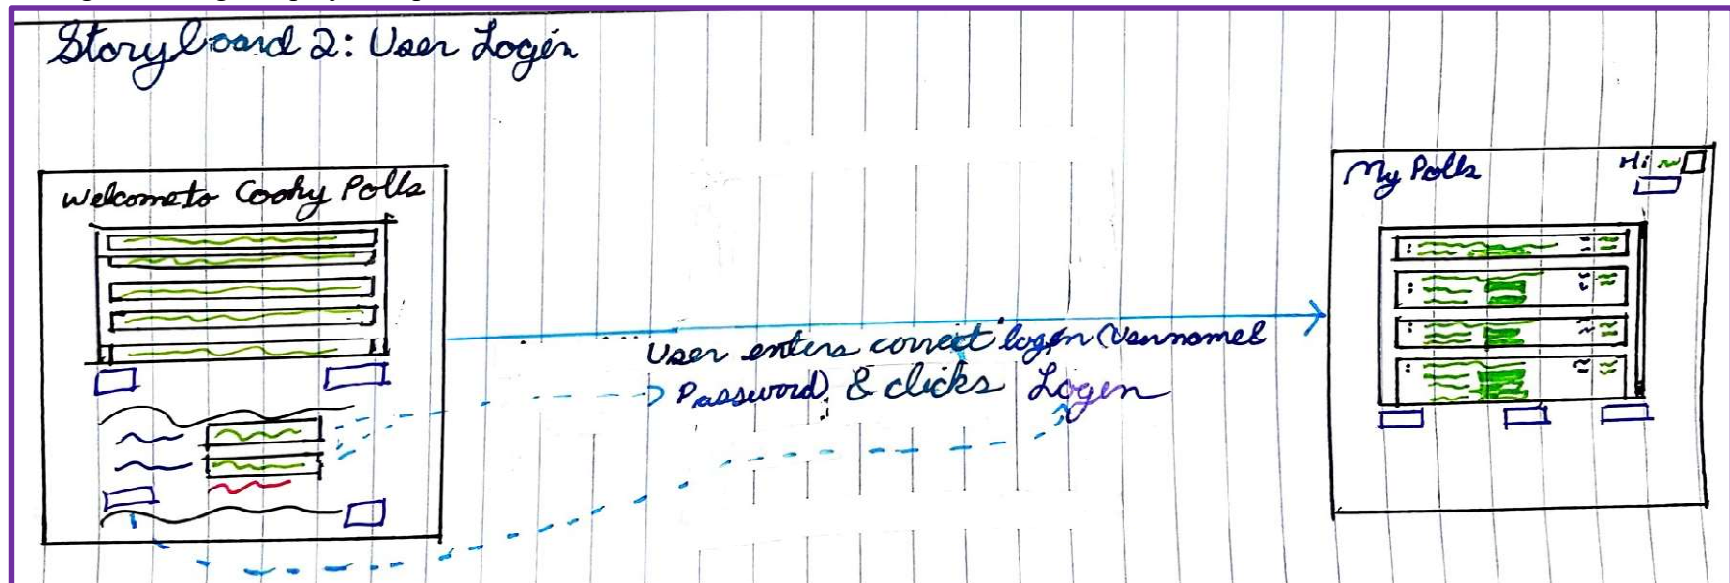 Storyboard 2: User Login
Welcome to Cooky Polls
My Polls
Hi
User enters correct login (Username &
Password) & clicks Login